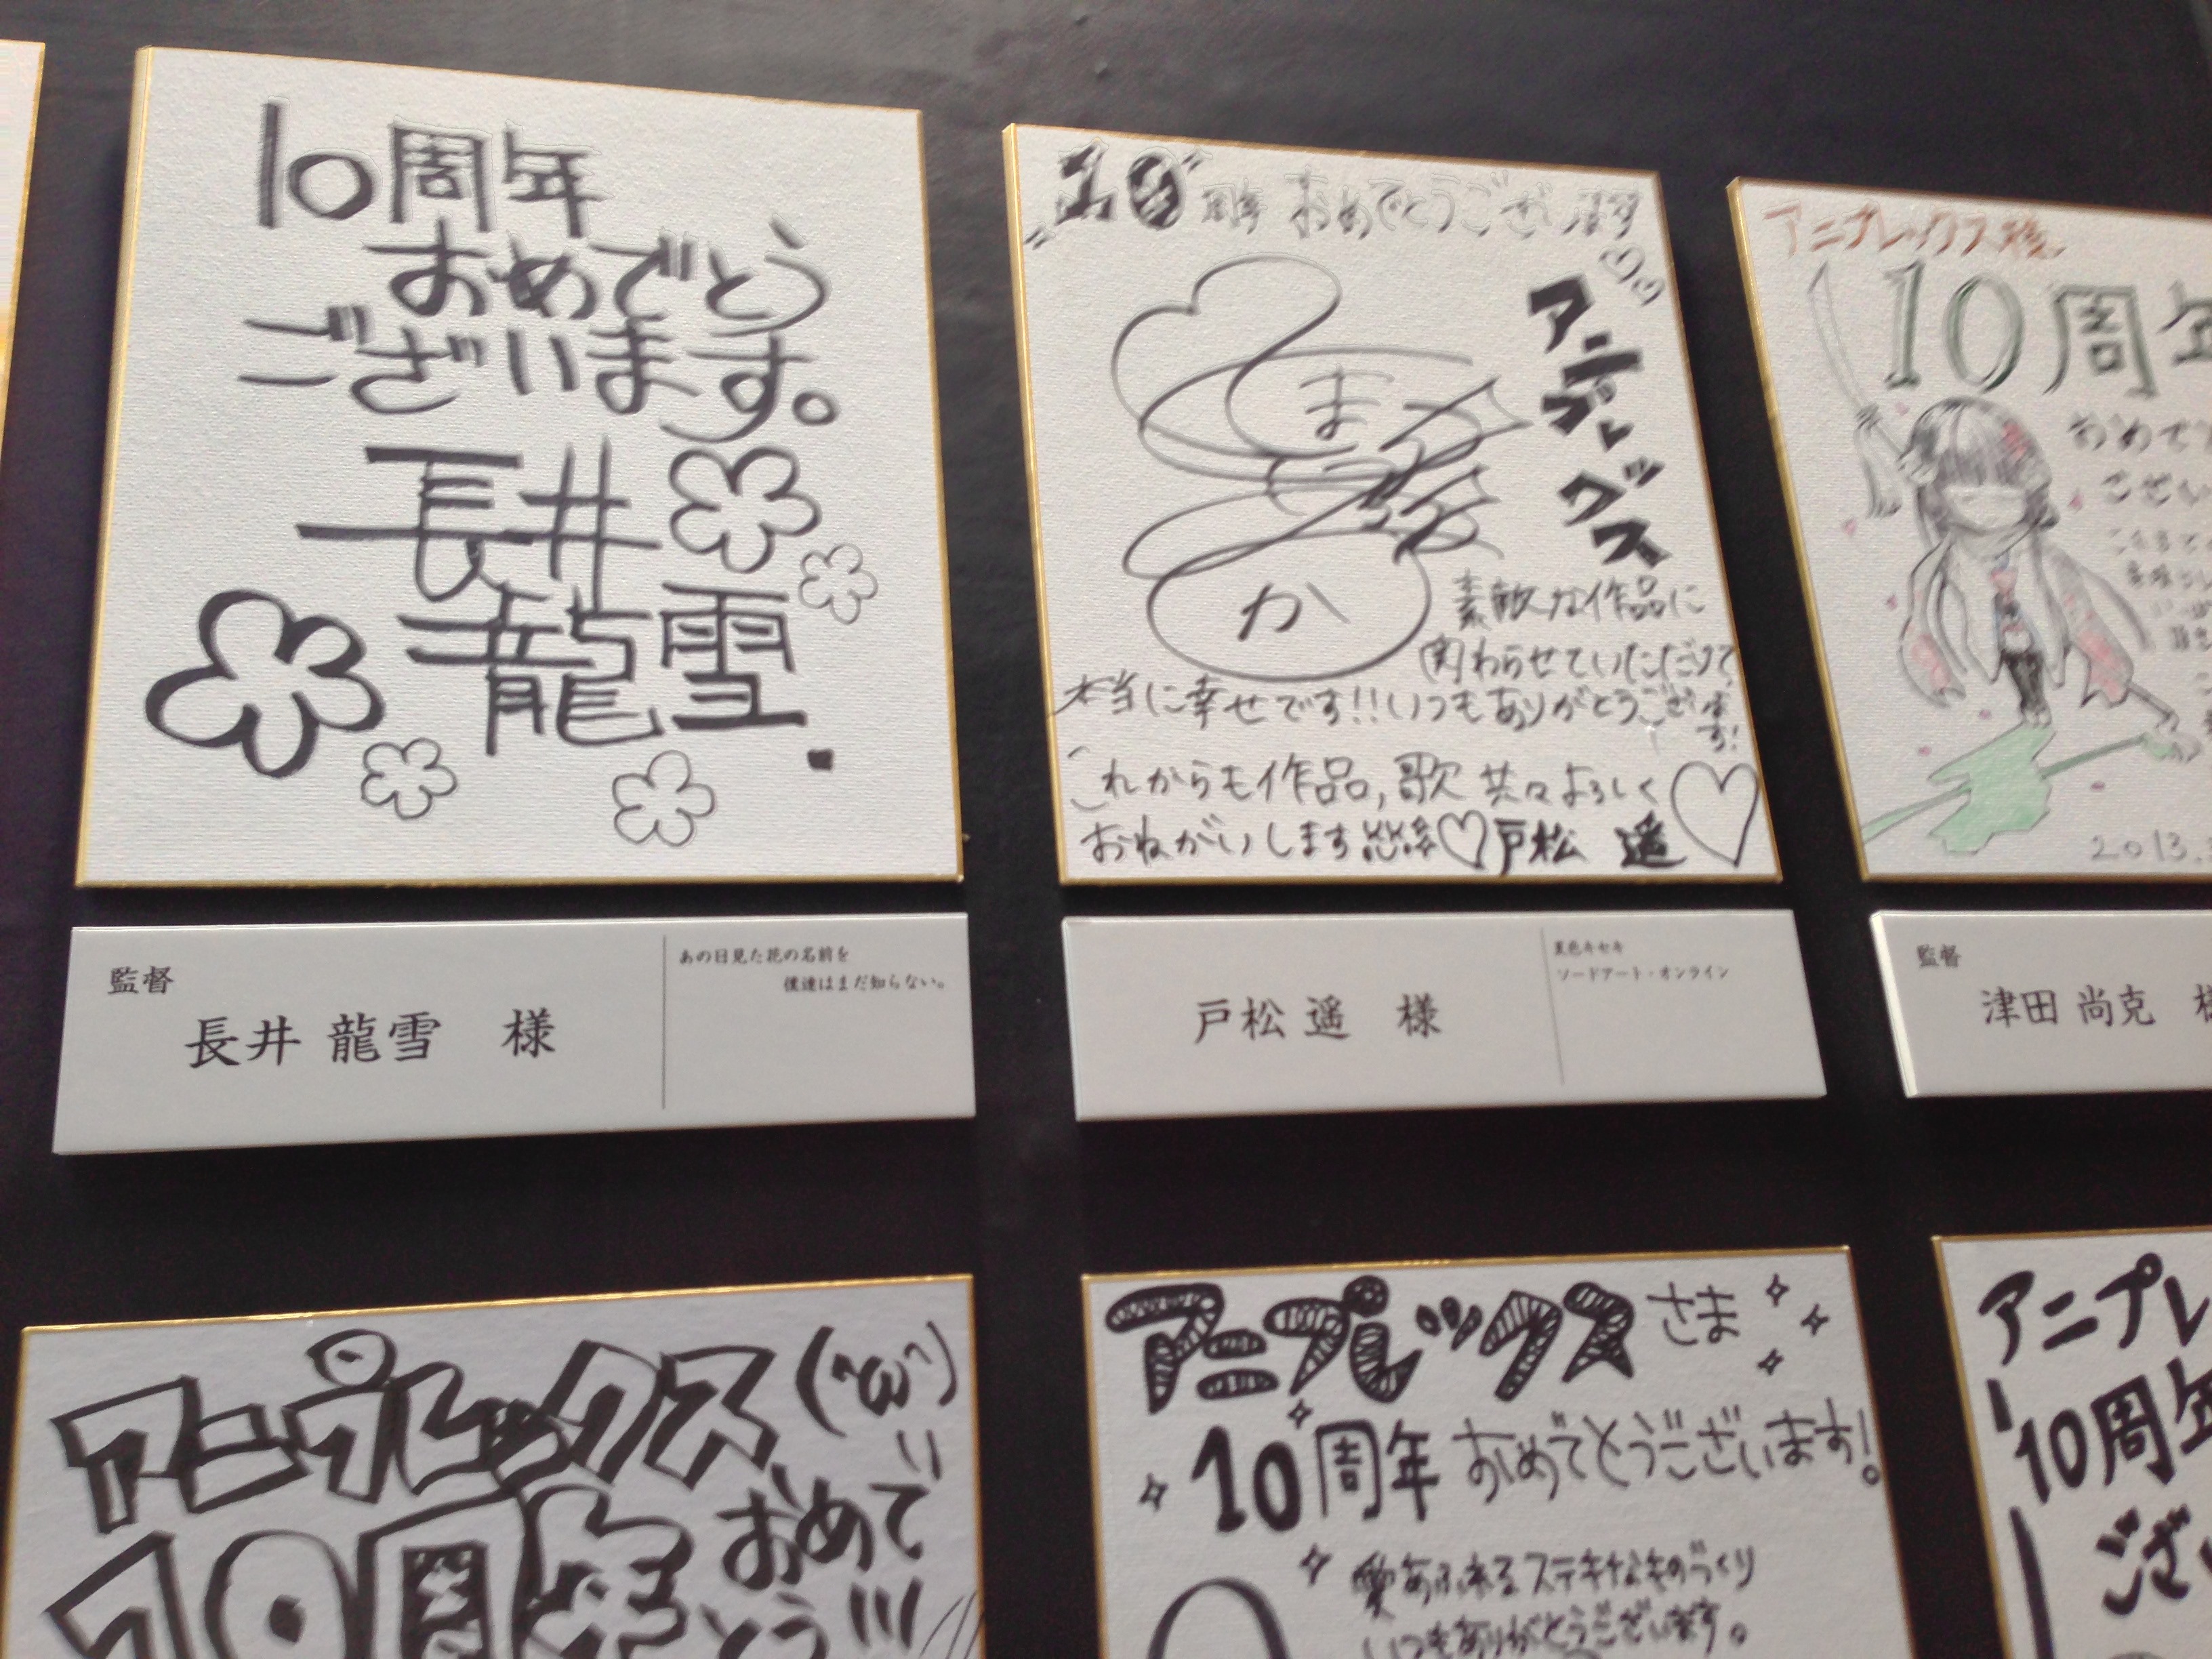 10周年
おめでとう
ございます。
長井
龍雪.
監督
長井 龍雪 様
あの日見た花の名前を
僕達はまだ知らない。
10周年 おめでとうございます
アニプレックス
ま
か
素敵な作品に
関わらせていただけて、
本当に幸せです!!いつもありがとうございます!
これからも作品,歌 共々よろしく
おねがいします 戸松 遥
戸松 遥 様
夏色キセキ
ソードアート・オンライン
アニプレックス様
10周年
おめで
ござい
2013.
監督
津田 尚克
アニプレックス
(´ω`)
10周年
おめで
とう!!!
アニプレックスさま
10周年 おめでとうございます!
愛あふれるステキなものづくり
いつもありがとうございます。
アニプレ
10周年
ござい